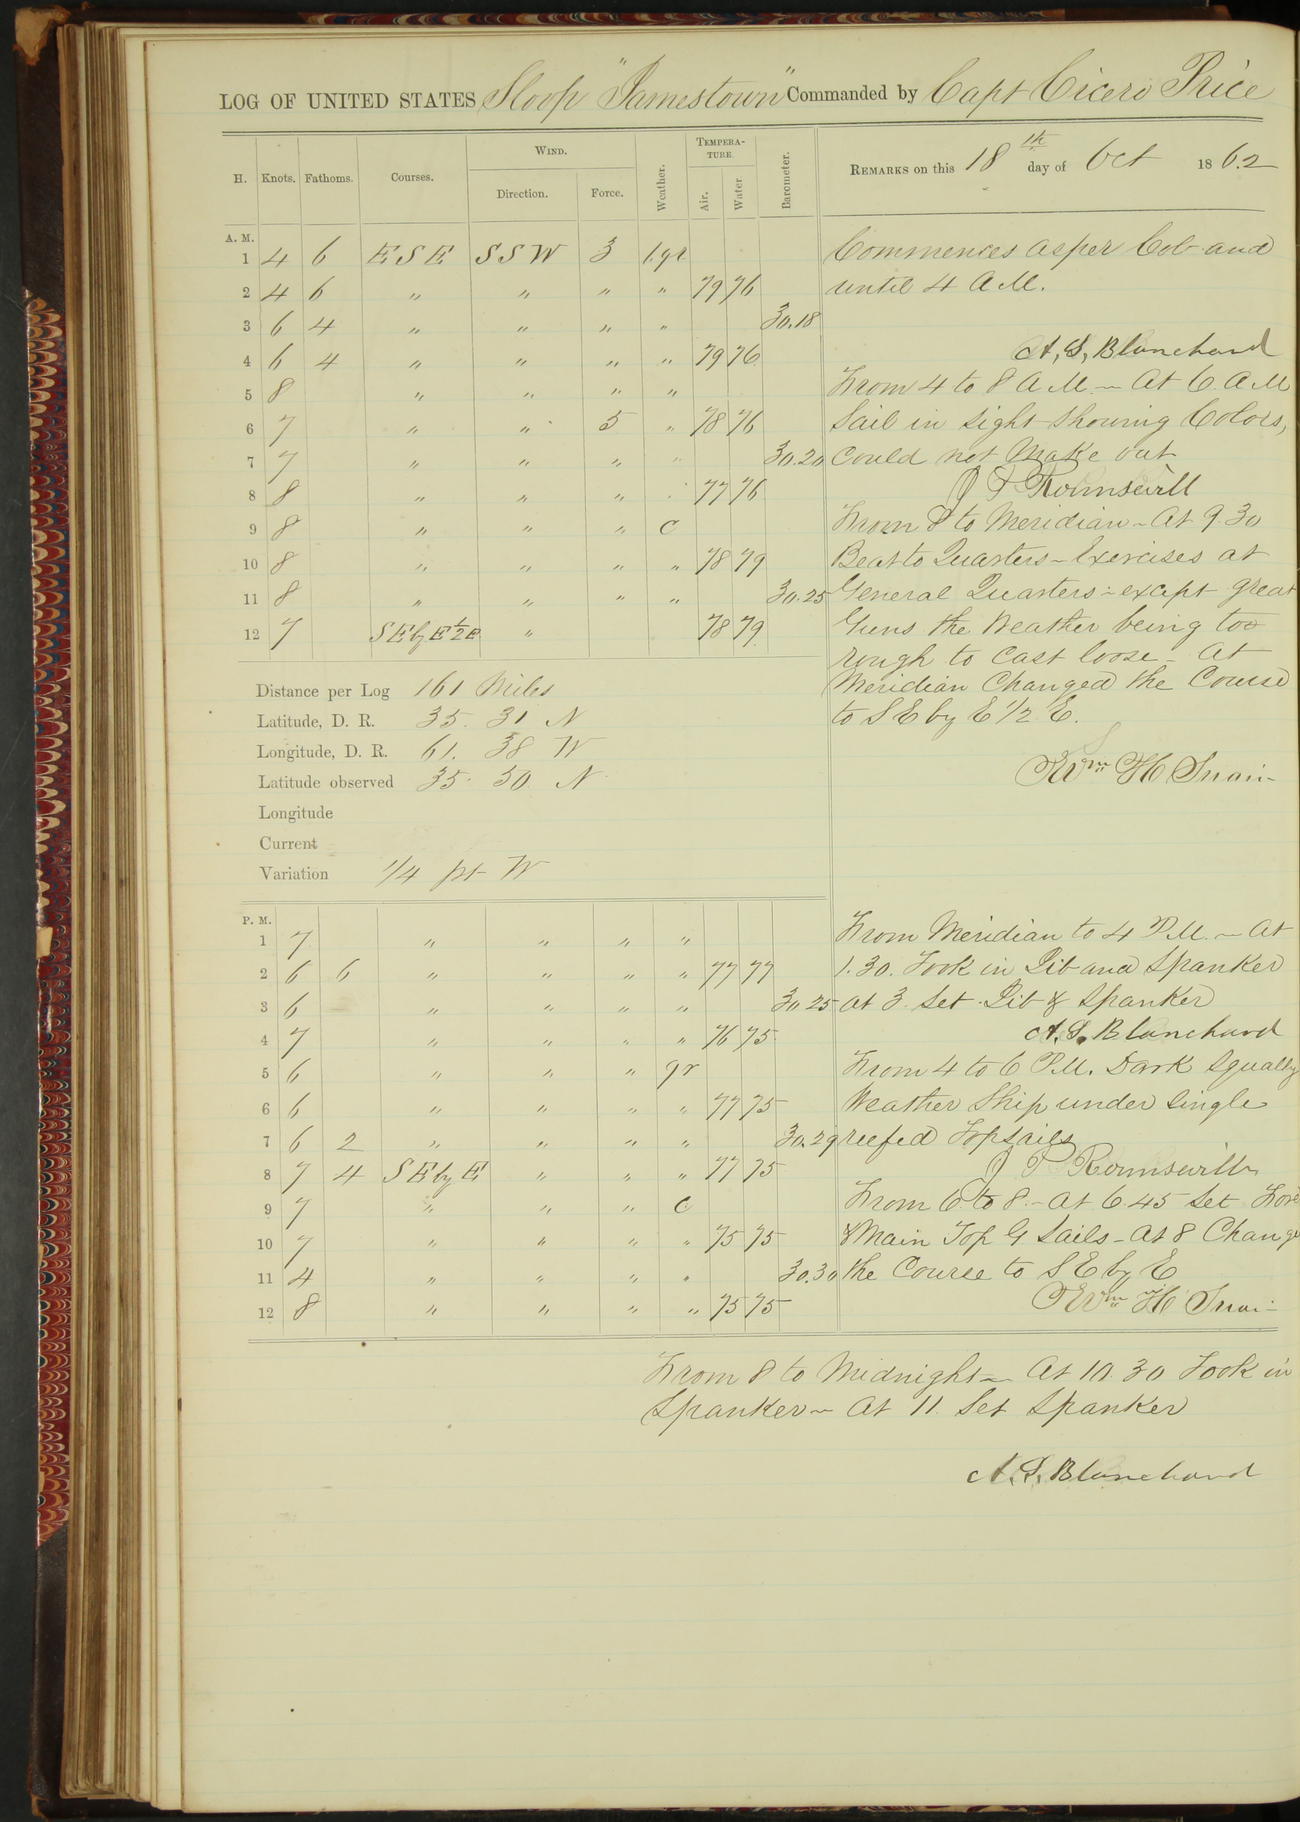 LOG OF UNITED STATES Sloop "Jamestown" Commanded by Capt Cicero Price
H. Knots. Fathoms. Courses. WIND. Direction. Force. Weather. TEMPERATURE. Air. Water. Barometer. REMARKS on this 18th day of Oct 1862
A. M.
1 4 6 E S E S S W 3 Commences as per Col and
2 4 6 " " " " 79 76 until 4 A M.
3 6 4 " " " " 30.18
4 6 4 " " " " 79 76 A, S, Blanchard
5 8 " " " " From 4 to 8 A M ~ At 6 A M
6 7 " " 5 " 78 76 Sail in sight showing Colors,
7 7 " " " " 30.20 could not Make out
8 8 " " " 77 76 J P
9 8 " " " C From 8 to Meridian ~ At 9.30
10 8 " " " " 78 79 Beat to Quarters ~ Exercises at
11 8 " " " " 30.25 General Quarters ~ except great
12 7 S E by E 1/2 E " 78 79 Guns the Weather being too
rough to cast loose ~ At
Meridian Changed the Course
to S E by E 1/2 E.
Wm H
Distance per Log 161 Miles
Latitude, D. R. 35. 31 N
Longitude, D. R. 61. 38 W
Latitude observed 35. 50 N
Longitude
Current
Variation 1/4 pt W
P. M.
1 7 " " " " From Meridian to 4 P M. ~ At
2 6 6 " " " " 77 77 1.30. Took in Jib and Spanker
3 6 " " " " 30 25 at 3. Set Jib & Spanker
4 7 " " " " 76 75 A. S. Blanchard
5 6 " " " gr From 4 to 6 P.M. Dark Squally
6 6 " " " " 77 75 Weather Ship under Single
7 6 2 " " " " 30.29 reefed Topsails
8 7 4 S E by E " " " 77 75 J P
9 7 " " " C From 6 to 8. ~ At 6.45 Set Fore
10 7 " " " " 75 75 & Main Top G. Sails ~ At 8 Change
11 4 " " " " 30.30 the Course to S E by E
12 8 " " " " 75 75 Wm H
From 8 to Midnight ~ At 10.30 Took in
Spanker ~ At 11. Set Spanker
A. S. Blanchard